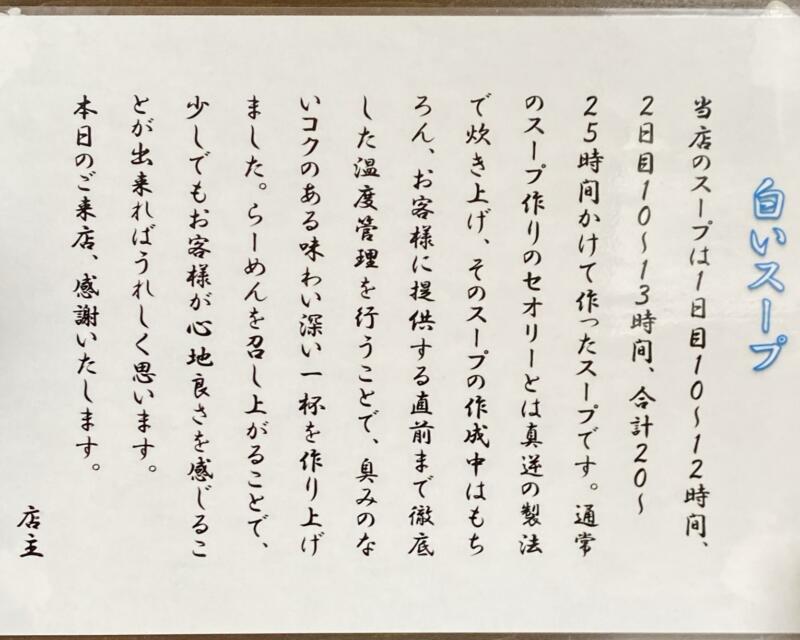 白いスープ
当店のスープは1日目10～12時間、
2日目10～13時間、合計20～
25時間かけて作ったスープです。通常
のスープ作りのセオリーとは真逆の製法
で炊き上げ、そのスープの作成中はもち
ろん、お客様に提供する直前まで徹底
した温度管理を行うことで、臭みのな
いコクのある味わい深い一杯を作り上げ
ました。らーめんを召し上がることで、
少しでもお客様が心地良さを感じるこ
とが出来ればうれしく思います。
本日のご来店、感謝いたします。
店主